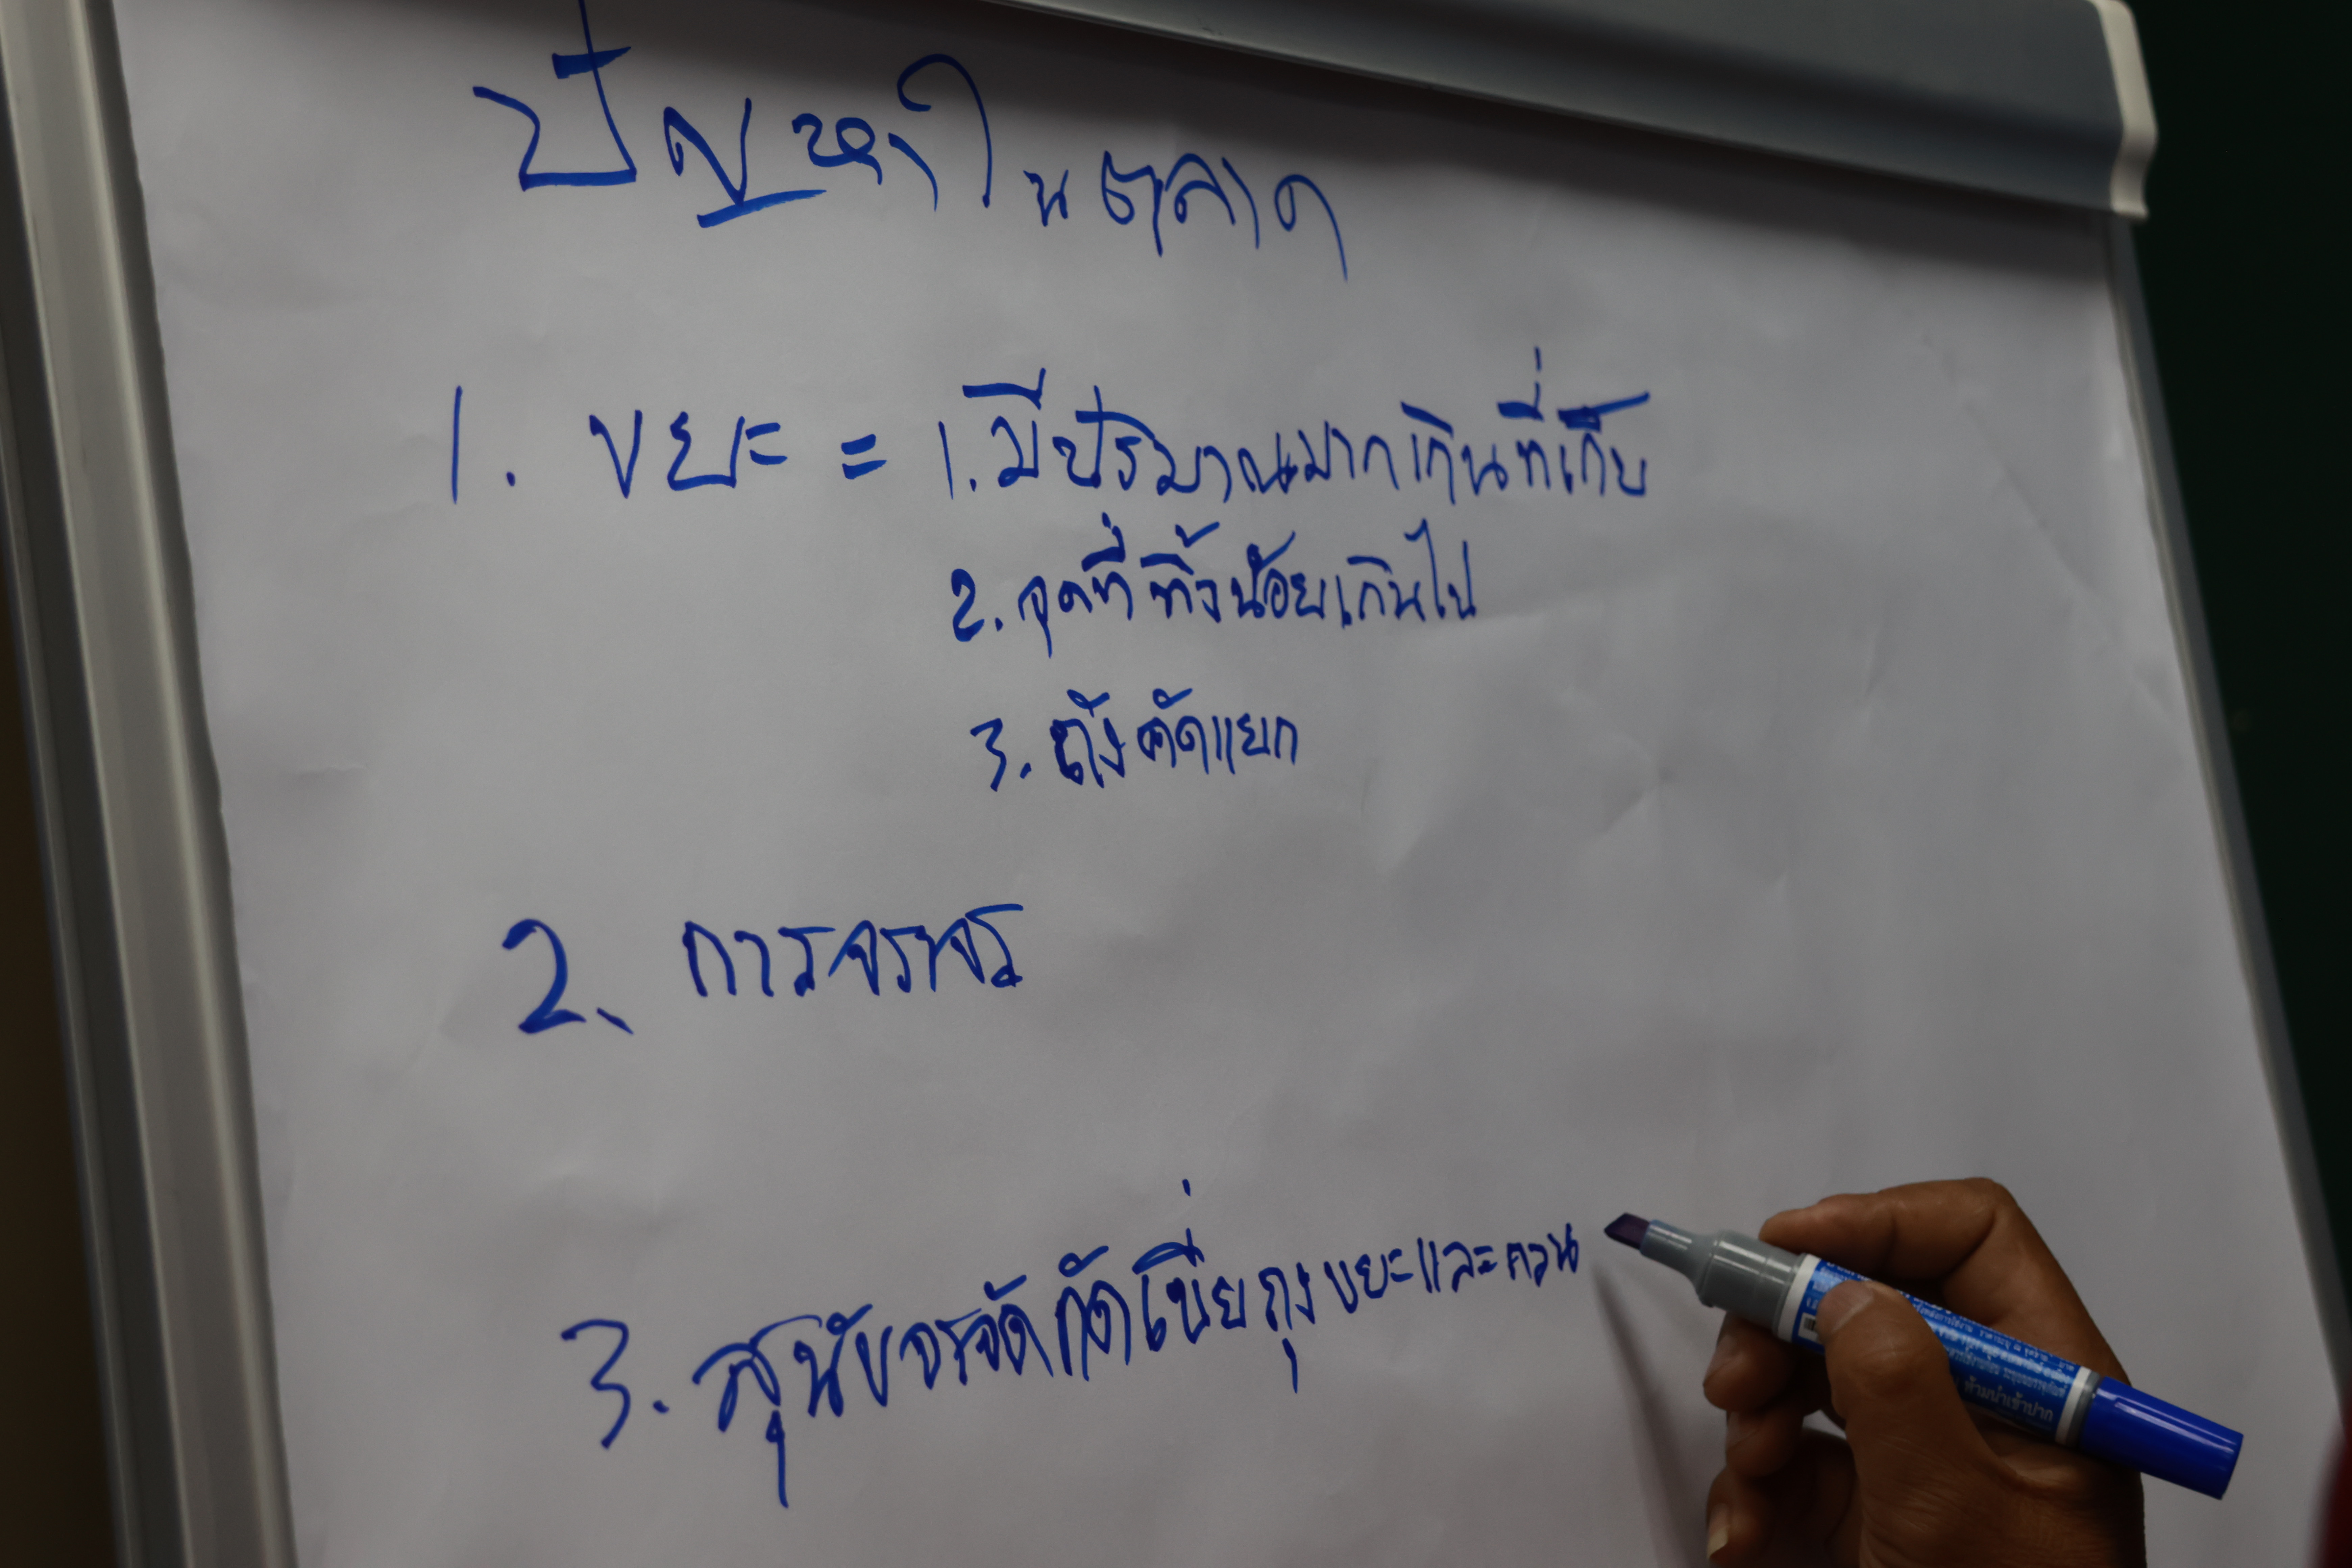 ปัญหาในตลาด
1. ขยะ = 1. มีปริมาณมากเกินที่เก็บ
2. จุดที่ทิ้งน้อยเกินไป
3. ถังคัดแยก
2. การจราจร
3. สุนัขจรจัดกัดเขี่ยถุงขยะและคน
ห้ามนำเข้าปาก